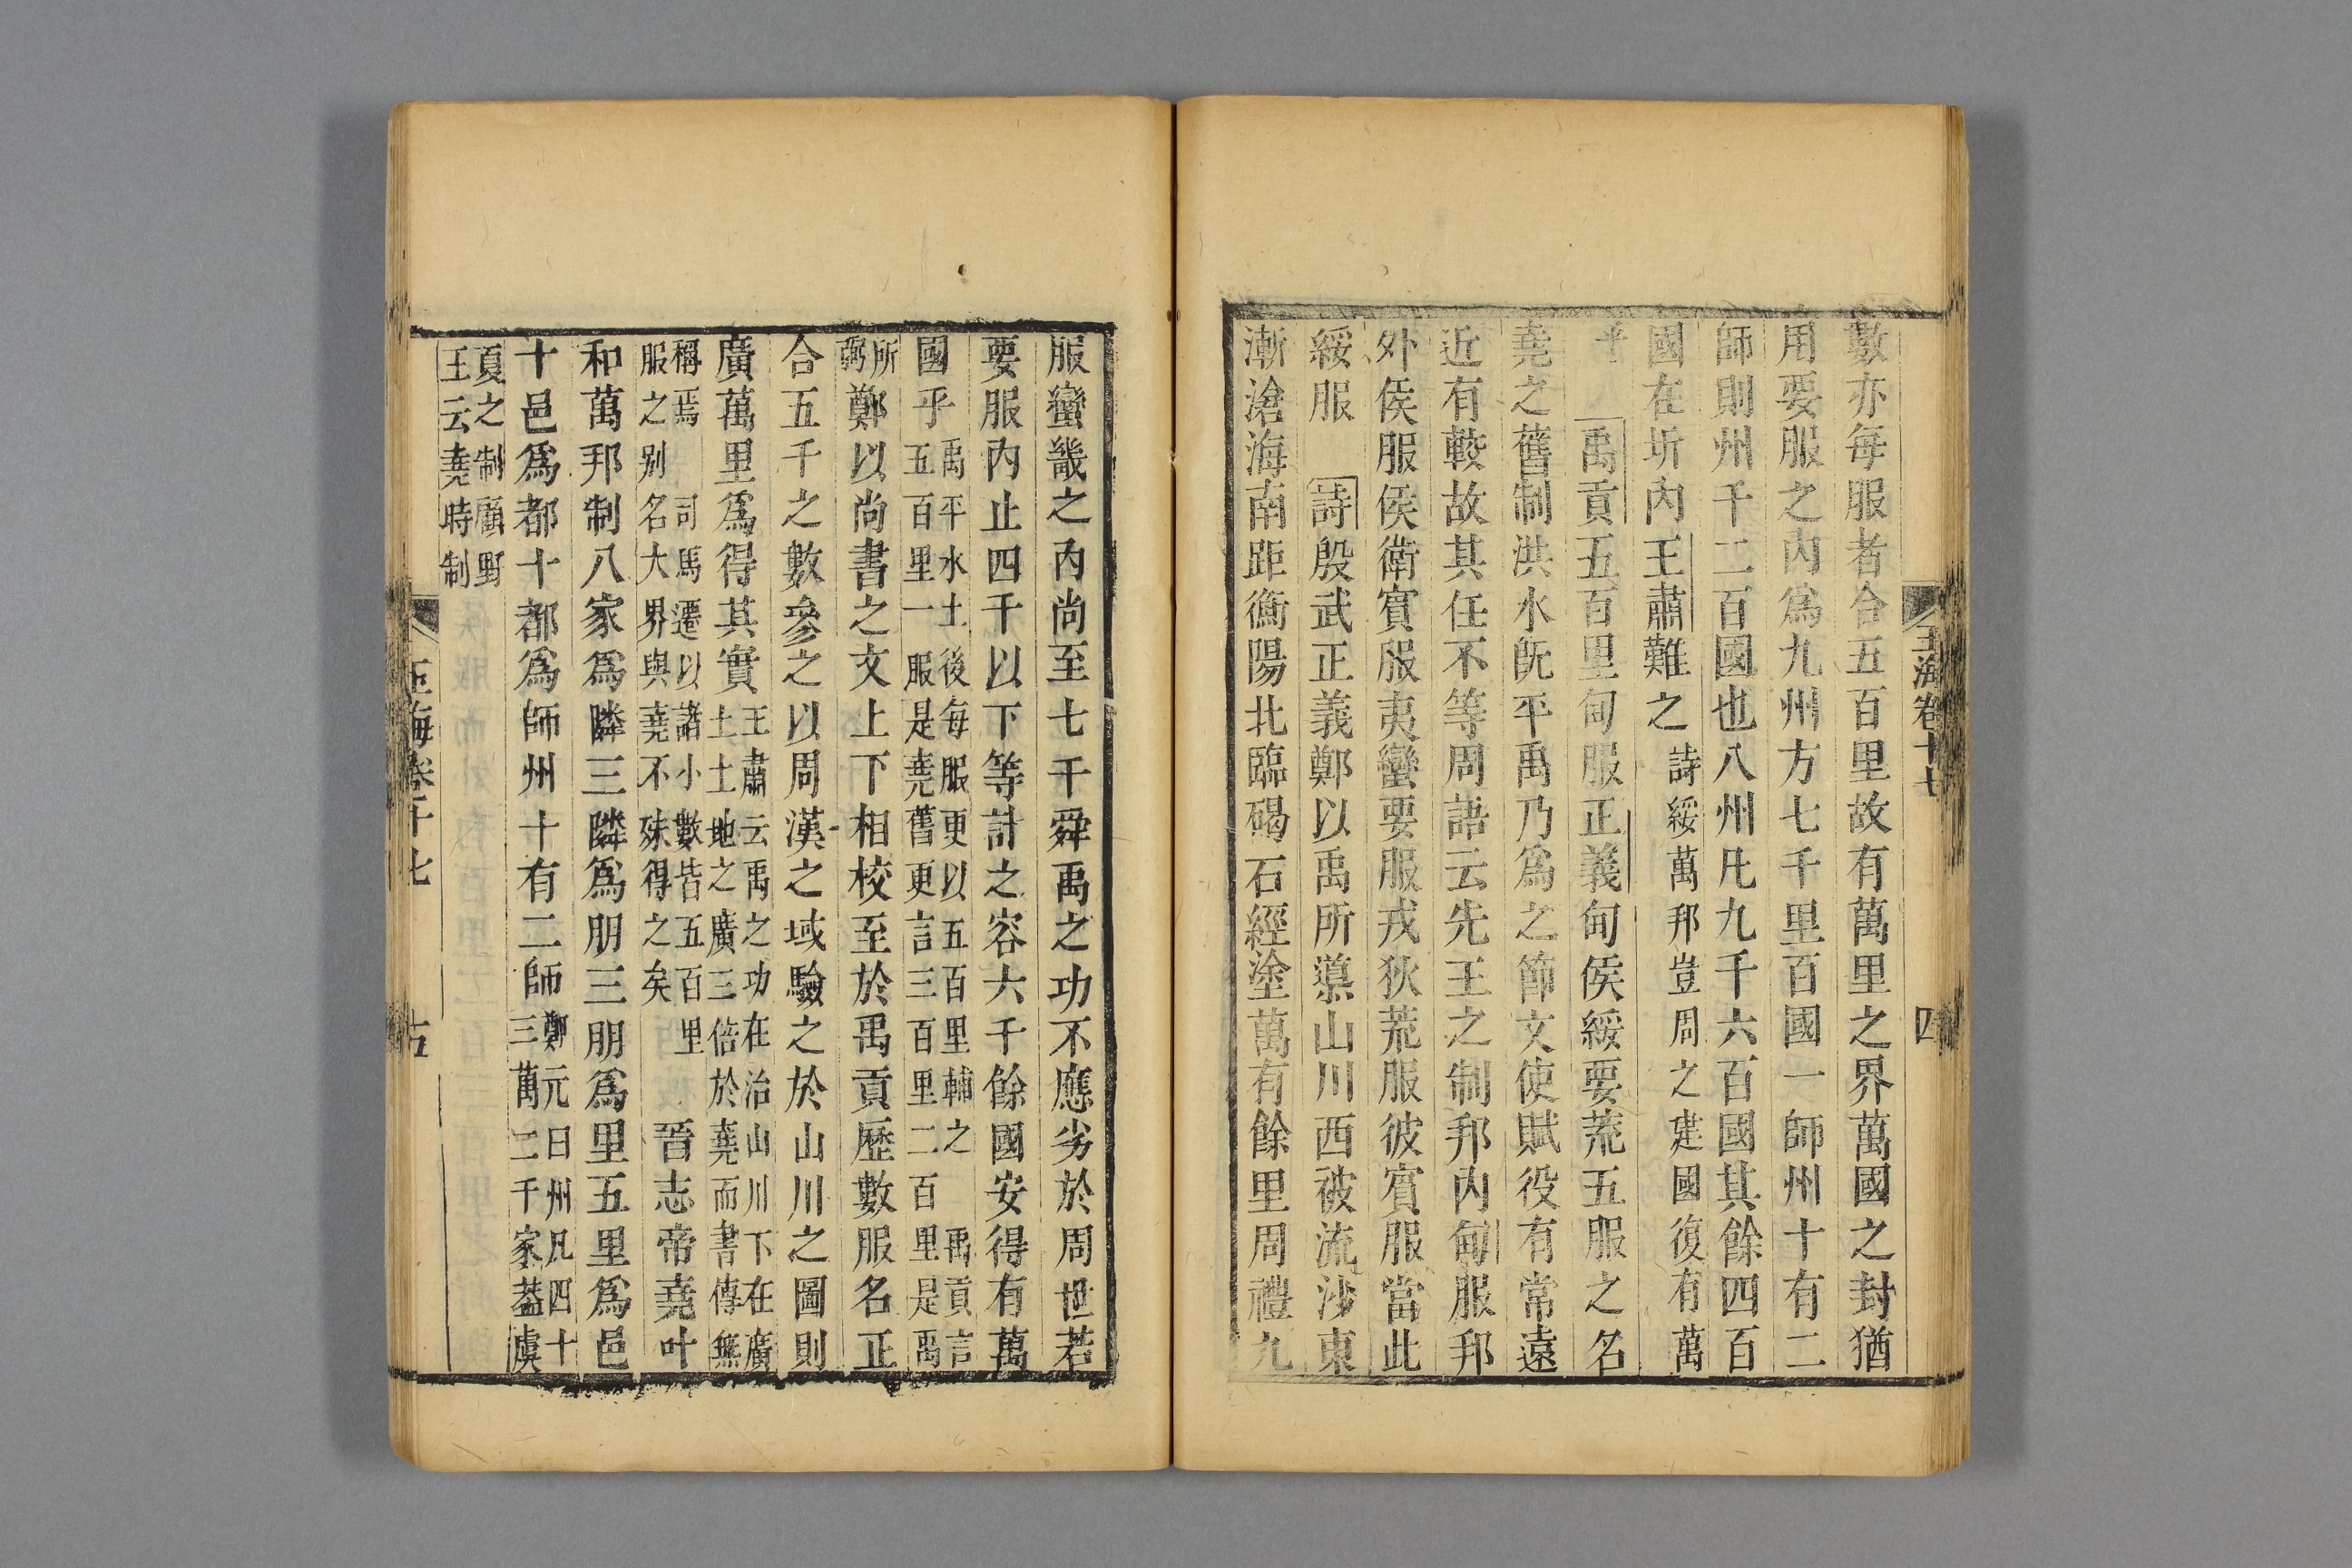 玉海卷十七 四
數亦每服者合五百里故有萬里之界萬國之封猶
用要服之內爲九州方七千里百國一師州十有二
師則州千二百國也八州凡九千六百國其餘四百
國在圻內王肅難之 詩綏萬邦豈周之建國復有萬
乎 禹貢五百里甸服正義甸侯綏要荒五服之名
堯之舊制洪水旣平禹乃爲之節文使賦役有常遠
近有較故其任不等周語云先王之制邦內甸服邦
外侯服侯衛賓服夷蠻要服戎狄荒服彼賓服當此
綏服 詩殷武正義鄭以禹所導山川西被流沙東
漸滄海南距衡陽北臨碣石經塗萬有餘里周禮九
服蠻畿之內尚至七千舜禹之功不應劣於周世若
要服內止四千以下等計之容六千餘國安得有萬
國乎 禹平水土後每服更以五百里輔之 禹貢言
五百里一服是堯舊更言三百里二百里是禹
所
弼 鄭以尚書之文上下相校至於禹貢歷數服名正
合五千之數參之以周漢之域驗之於山川之圖則
廣萬里爲得其實 王肅云禹之功在治山川下在廣
土土地之廣三倍於堯而書傳無
稱焉 司馬遷以諸小數皆五百里
服之別名大界與堯不殊得之矣 晉志帝堯叶
和萬邦制八家爲隣三隣爲朋三朋爲里五里爲邑
十邑爲都十都爲師州十有二師 鄭元曰州凡四十
三萬二千家葢虞
夏之制顧野
王云堯時制
玉海卷十七